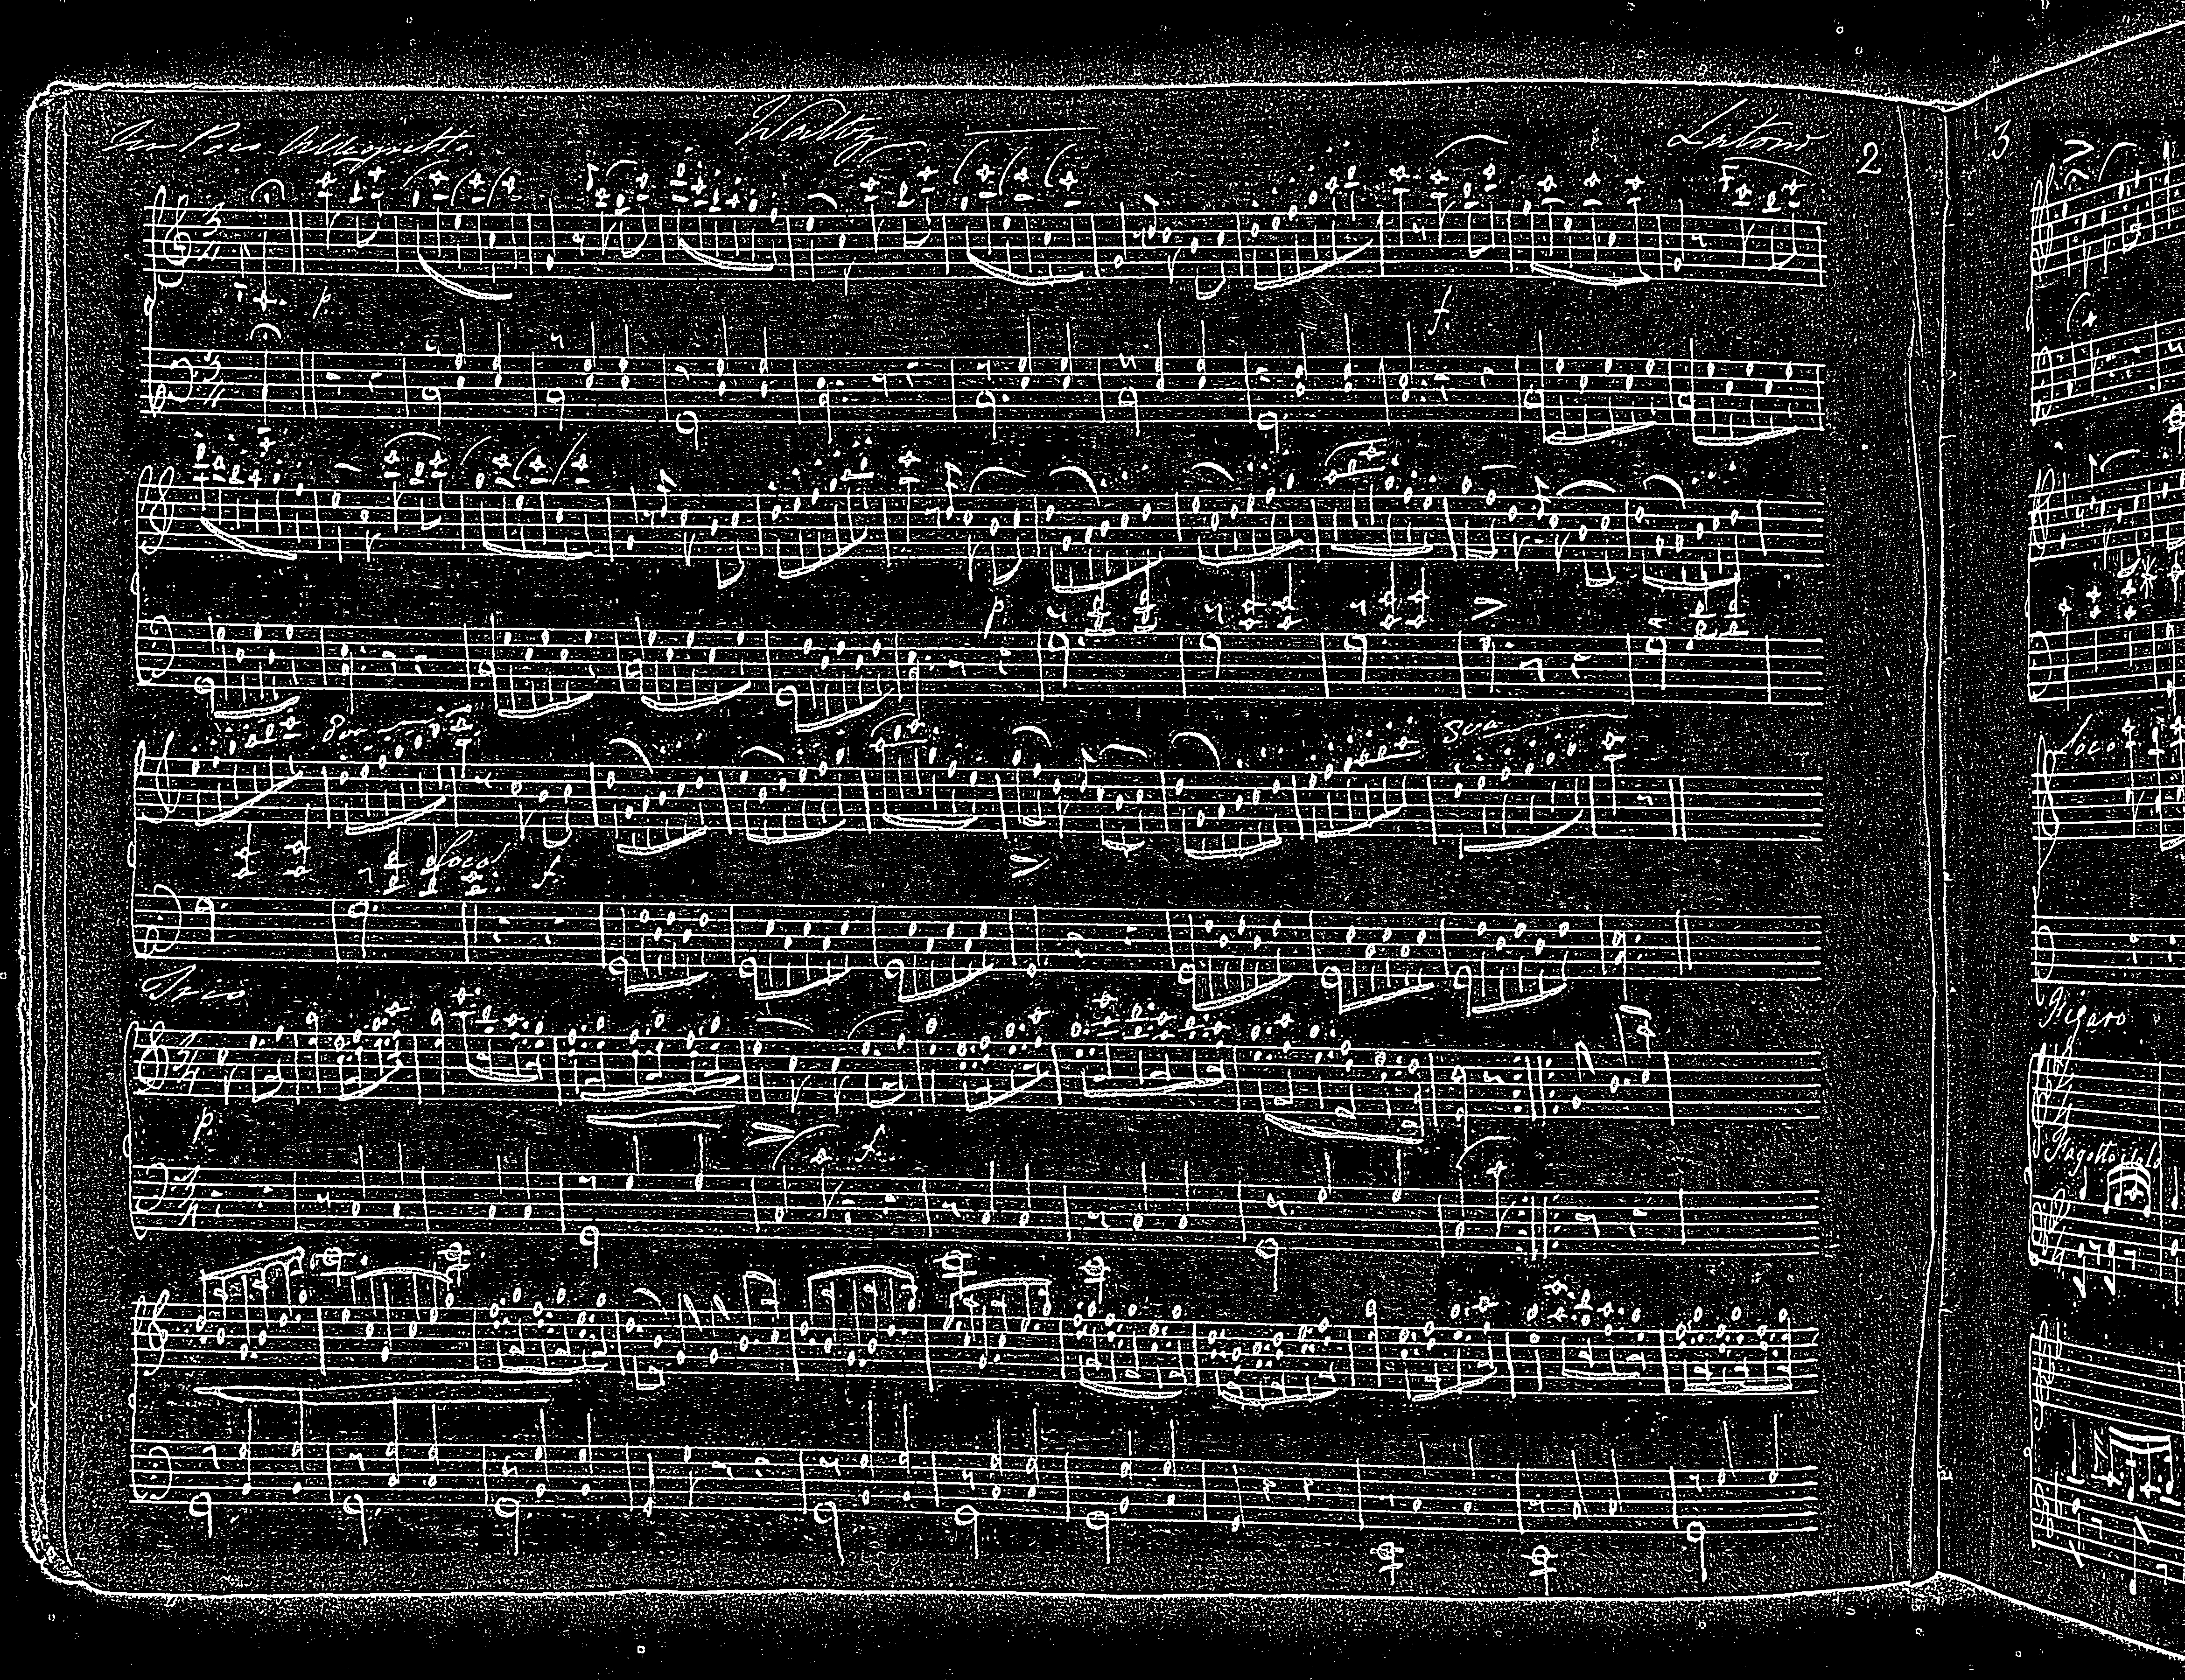 Un Poco Allegretto Waltz 2
p. f.
p
8va
loco f.
Trio
p. f.
3
loco
Figaro
Fagotto solo